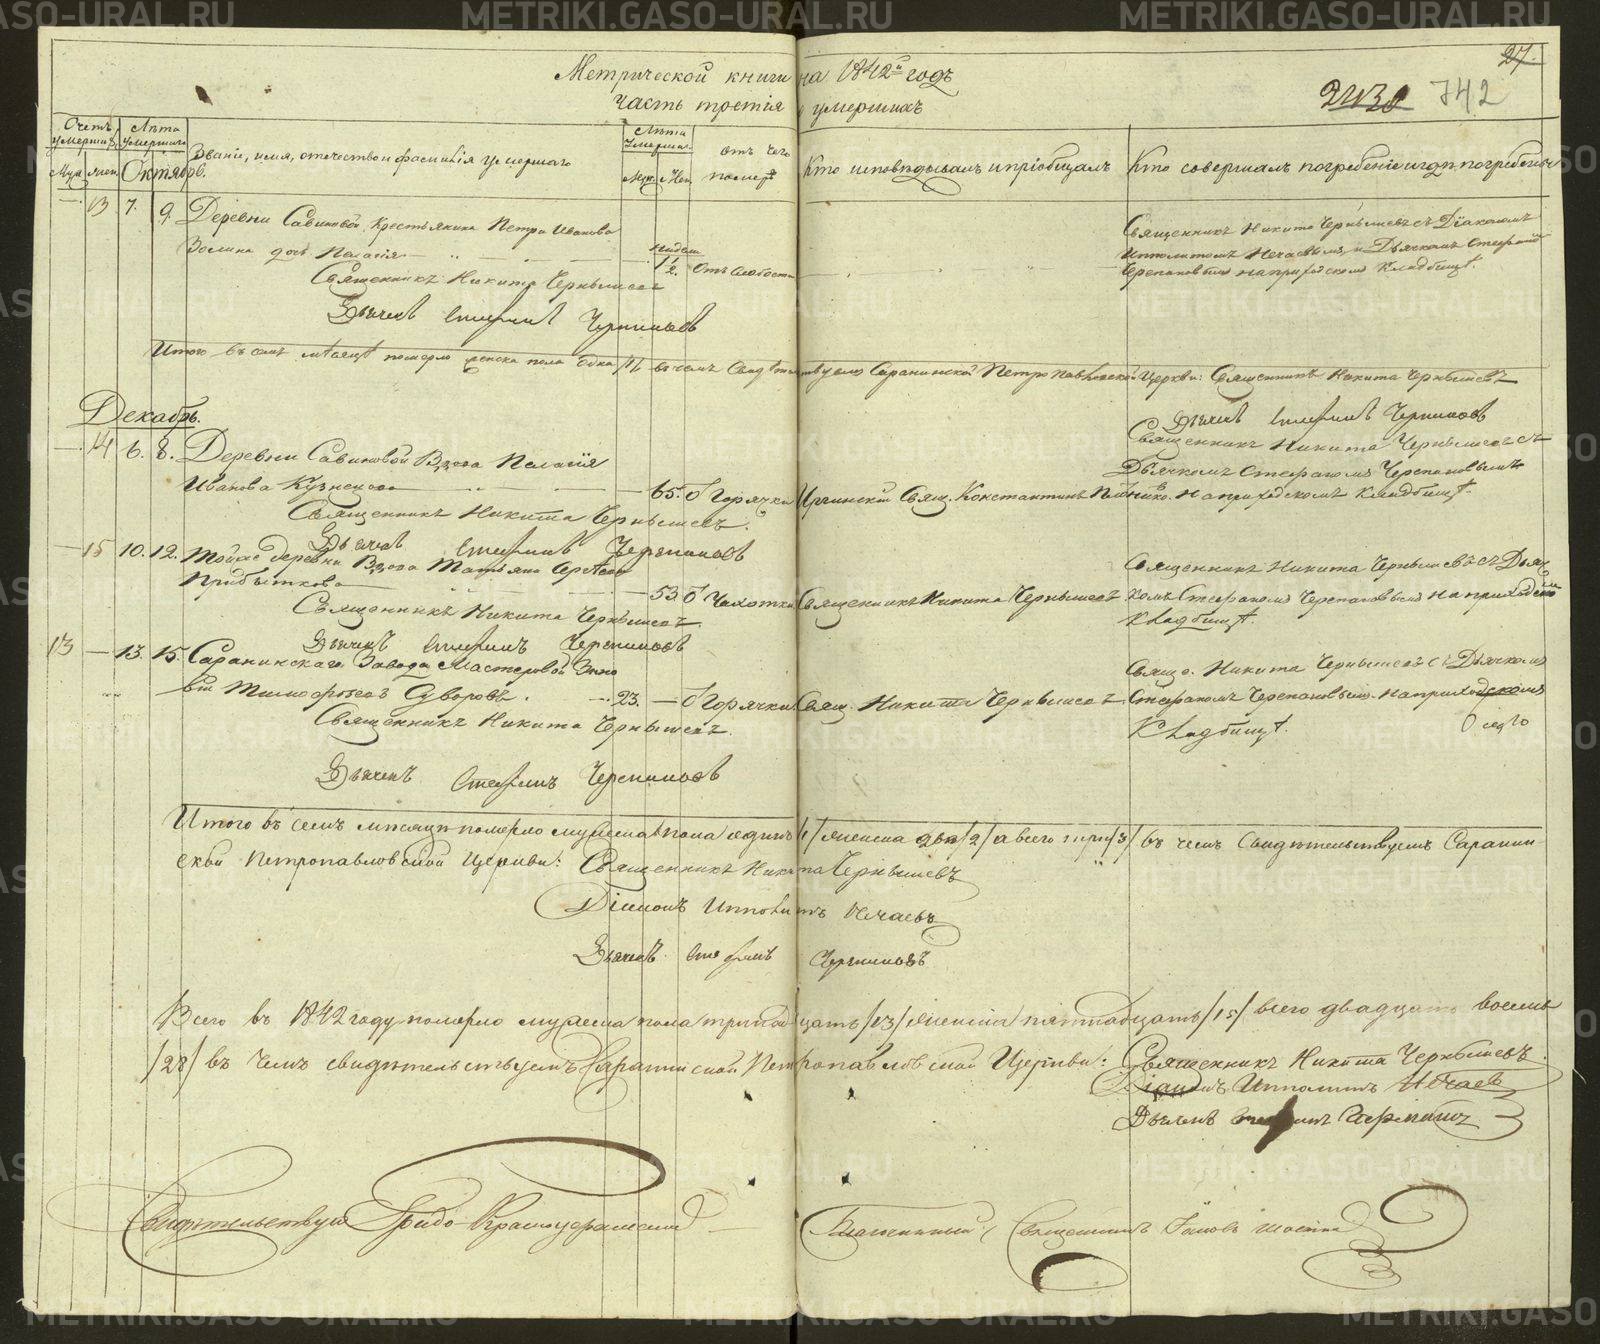 Метрической книги на 1842й годъ
часть третія о умершихъ
27.
2130 742
Счетъ умершихъ
Лѣта умершаго
Званіе, имя, отечество и фамилія умершаго
Лѣта умершаго
отъ чего померъ
Кто исповѣдывалъ и пріобщалъ
Кто совершалъ погребеніе и гдѣ погребены
Муж. жен. Октябрь.
Муж. Жен.
— 13 7. 9. Деревни Савиновой крестьянина Петра Иванова
Зомина дочь Пелагія недели 1/2. Отъ слабости
Священникъ Никита Чернышевъ съ Діакономъ
Ипполитомъ Нечаевымъ и Дьячкомъ Стефаномъ
Черепановымъ на приходскомъ кладбищѣ.
Священникъ Никита Чернышевъ
Дьячекъ Стефанъ Черепановъ
Итого въ семъ мѣсяцѣ померло женска пола одна /1/ въ чемъ Свидѣтельствуемъ Саранинской Петропавловской Церкви: Священникъ Никита Чернышевъ
Дьячекъ Стефанъ Черепановъ
Декабрь.
— 14 6. 8. Деревни Савиновой Вдова Пелагія
Иванова Кузнецова — 65. б Горячки Иргинскій Свящ. Константинъ
Священникъ Никита Чернышевъ съ
Дьячкомъ Стефаномъ Черепановымъ
на приходскомъ кладбищѣ.
Священникъ Никита Чернышевъ.
Дьячекъ Стефанъ Черепановъ
— 15 10. 12. Тойже деревни Вдова Татьяна
Прибыткова — 53. б Чахотки Священникъ Никита Чернышевъ
Священникъ Никита Чернышевъ съ Дьяч
комъ Стефаномъ Черепановымъ на приходскомъ
кладбищѣ.
Священникъ Никита Чернышевъ.
Дьячекъ Стефанъ Черепановъ
13 — 13. 15. Саранинскаго Завода Мастеровой
Тимофеевъ Суворовъ. 23. — б Горячки Свящ. Никита Чернышевъ
Свящ. Никита Чернышевъ съ Дьячкомъ
Стефаномъ Черепановымъ на приходскомъ
кладбищѣ.
Священникъ Никита Чернышевъ.
Дьячекъ Стефанъ Черепановъ
Итого въ семъ мѣсяцѣ померло мужеска пола одинъ /1/ женска два /2/ а всего три /3/ въ чемъ Свидѣтельствуемъ Саранин
ской Петропавловской Церкви: Священникъ Никита Чернышевъ
Діаконъ Ипполитъ Нечаевъ
Дьячекъ Стефанъ Черепановъ
Всего въ 1842 году померло мужеска пола тринадцать /13/ женска пятнадцать /15/ всего двадцать восемь
/28/ въ чемъ свидѣтельствуемъ Саранинской Петропавловской Церкви: Священникъ Никита Чернышевъ.
Діаконъ Ипполитъ Нечаевъ
Дьячекъ Стефанъ Черепановъ
Свидѣтельствуя Градо Красноуфимский
Благочинный Священникъ Іаковъ
METRIKI.GASO-URAL.RU